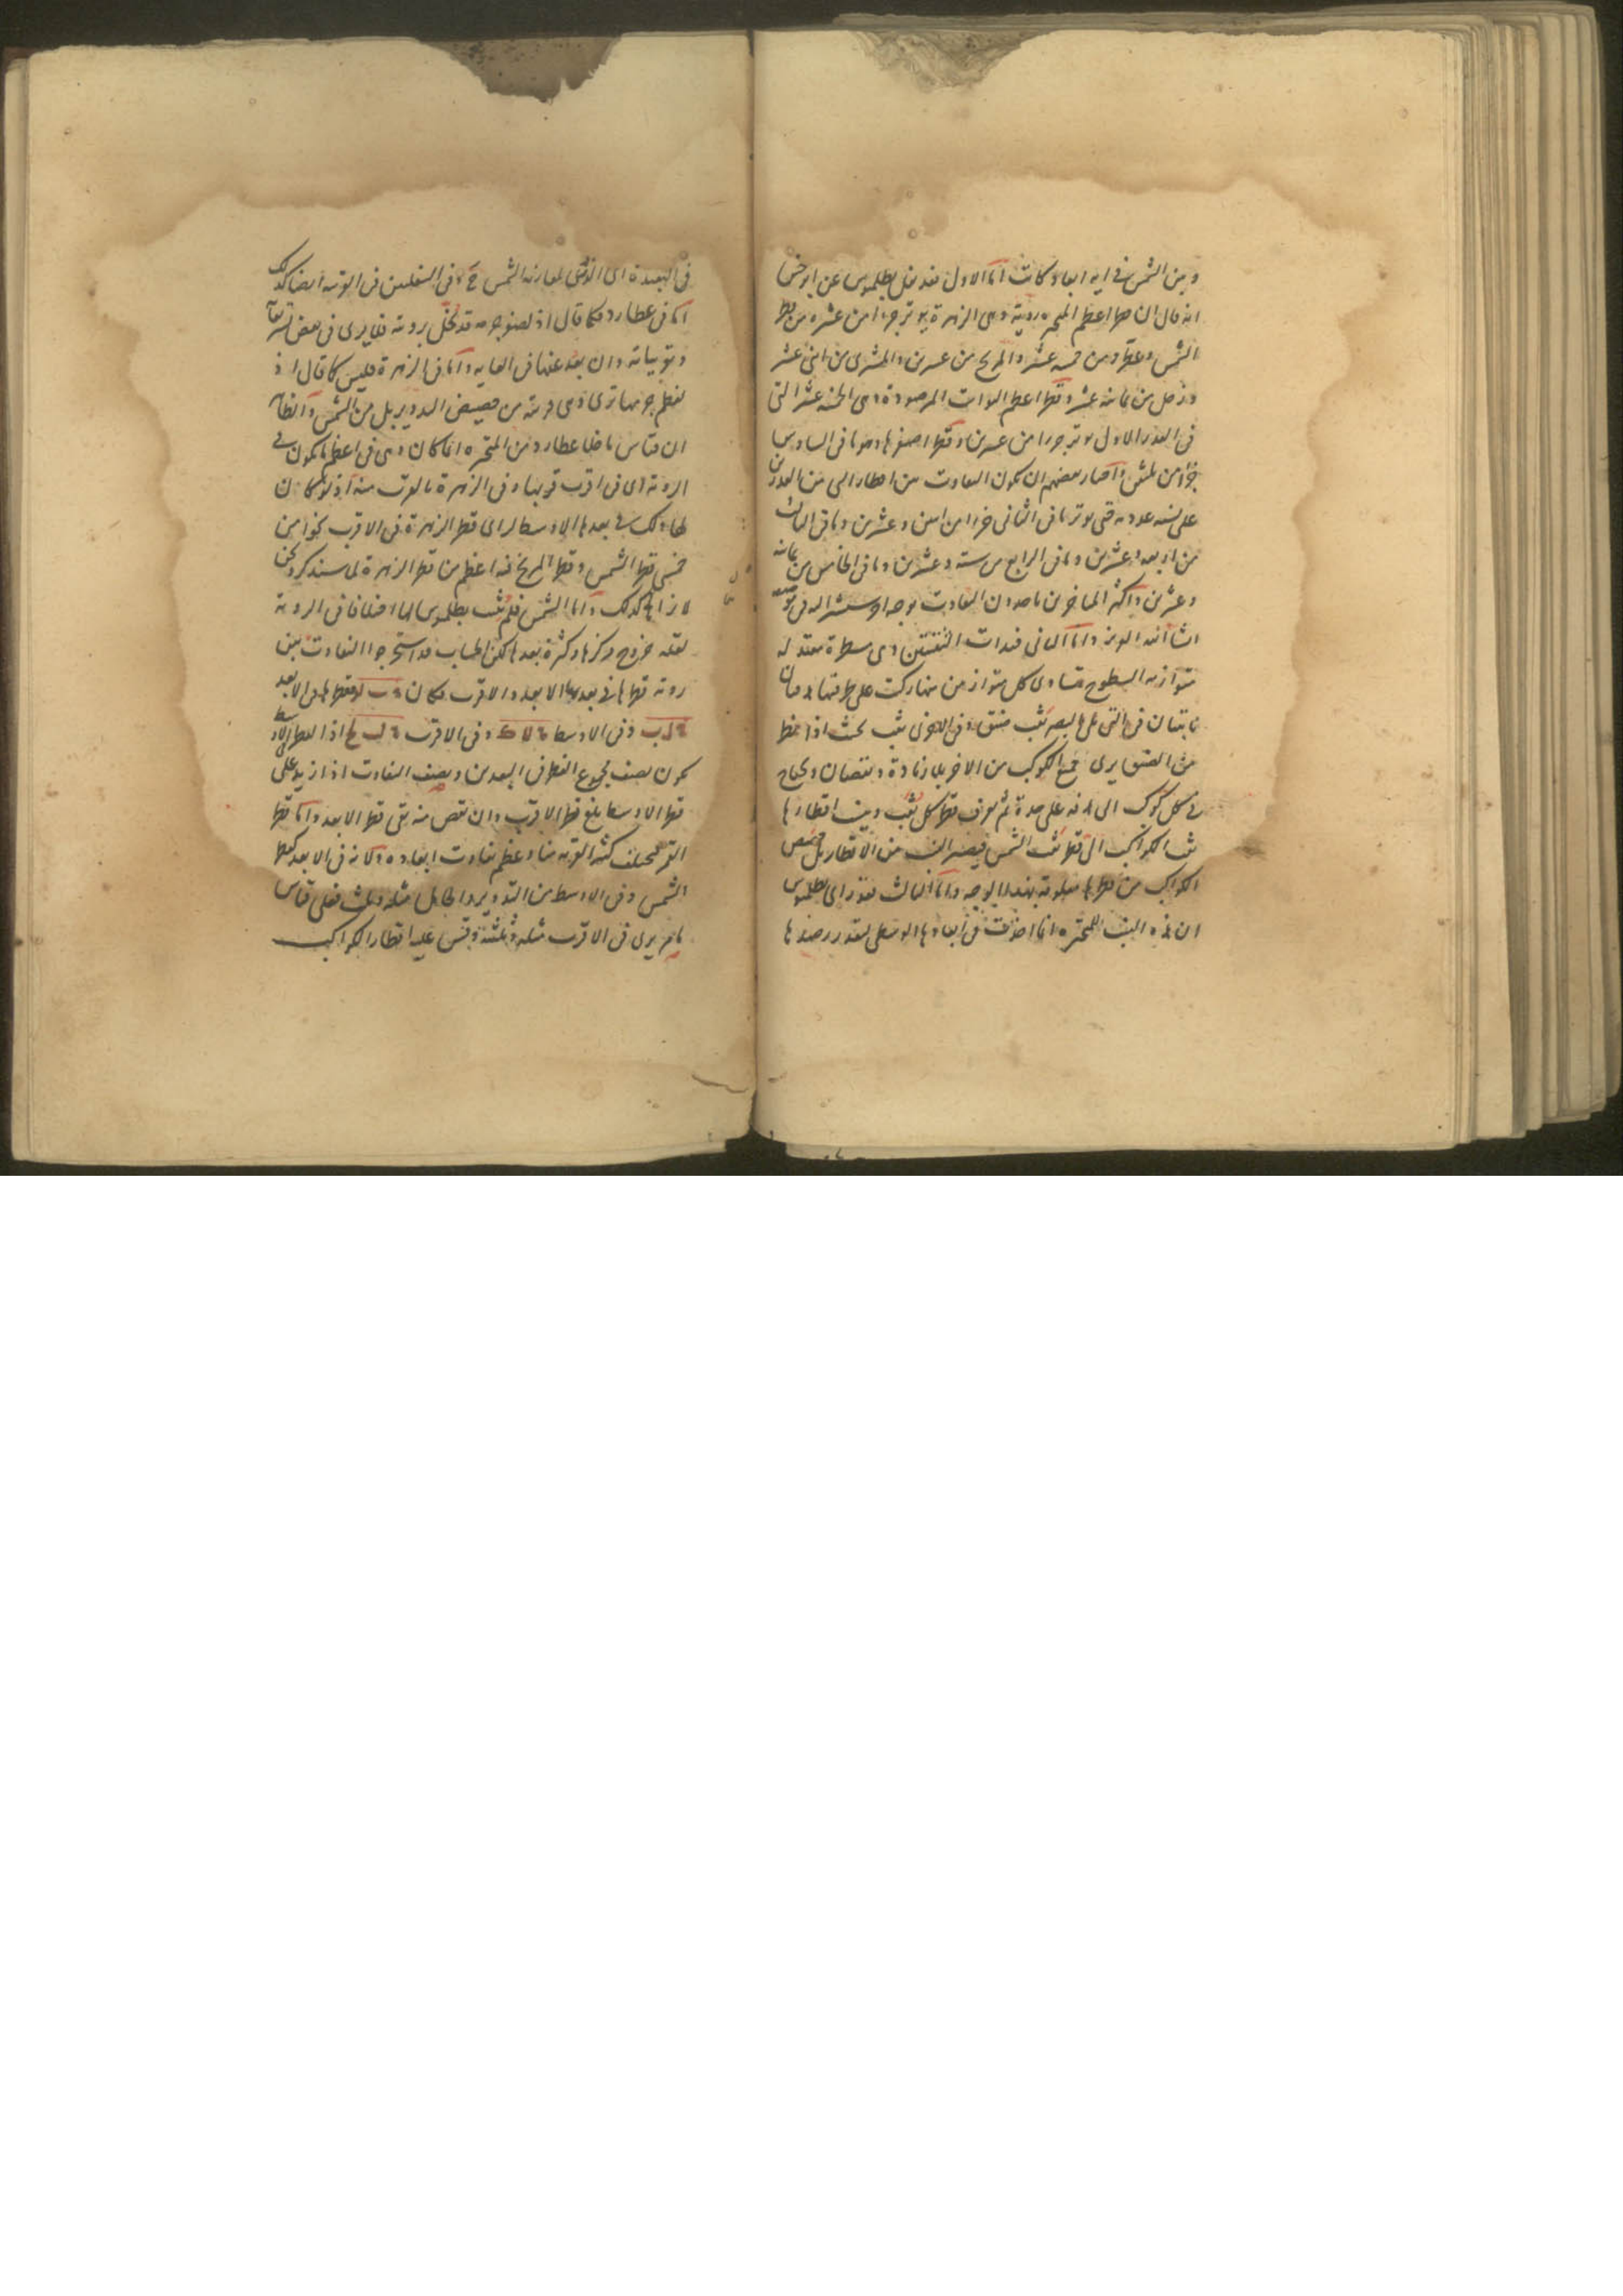 وبين الشمس في اية ابعاد كانت اما الاول فقد نقل بطلميوس عن ابرخس
انه قال ان قطر اعظم المتحيرة روية وهي الزهرة يوتر جزءا من عشرة من قطر
الشمس وعطارد من خمسه عشر والمريخ من عشرين والمشترى من اثنى عشر
وزحل من ثمانيه عشر وقطر اعظم الثوابت المرصودة وهى الخمسه عشر التى
فى القدر الاول يوتر جزءا من عشرين وقطر اصغرها وهو ما فى السادس
جزءا من ثلثين واختار بعضهم ان يكون التفاوت بين اقطار التى من القدرين
على نسبه عدديه حتى يوتر ما فى الثانى جزءا من اثنين وعشرين وما فى الثالث
من اربعه وعشرين وما فى الرابع من ستة وعشرين وما فى الخامس من ثمانيه
وعشرين واكثر المتاخرين ياخذون التفاوت بوجه اخر سنشير اليه فى موضعه
انشا الله العزيز واما الثانى فبذات الثقبتين وهى مسطرة معتدله
متوازيه السطوح يتساوى كل متوازيين منها ركبت على طرفيها
ثابتتان فى التى على البصر ثقب ضيق وفى الاخرى ثقب بحيث اذا نظر
من الضيق يرى جميع الكوكب من الاخر بلا زيادة ونقصان ويحتاج
فى كل كوكب الى على حدة ثم يعرف قطر كل ثقب وينسب اقطارها
ثقب الكواكب الى قطر ثقب الشمس فيصير النسب من الاقطار بل حصص
الكواكب من قطرها معلومة بهذا الوجه واما الثالث فقد راى بطلميوس
ان هذه النسب للمتحيره انما اخذت فى ابعادها الوسطى لتعذر رصدها
فى البعيدة اى الذرى لمقارنه الشمس ح وفى السفليين فى القريبه ايضا كذلك
اما فى عطارد فكما قال اذ لصغر جرمه قد تختل رويته فلا يرى فى بعض تشريقاته
وتغريباته وان بعد عنها فى الغايه واما فى الزهرة فليس كما قال اذ
لعظم جرمها ترى وهى قريبة من حضيض التدوير بل من الشمس والظاهر
ان قياس ما خلا عطارد من المتحيره انما كان وهى فى اعظم ما يكون فى
الروية اى فى اقرب قربها وفى الزهرة بالقرب منه اذ لو كان
ذلك فى بعدها الاوسط لراى قطر الزهرة فى الاقرب نحوا من
خمسى قطر الشمس وقطر المريخ فيه اعظم من قطر الزهرة لما سنذكر ونحن
لا نراها كذلك واما الشمس فلم يثبت بطلميوس لها اختلافا فى الروية
لقله خروج مركزها وكثرة بعدها لكن الحساب قد استخرجوا التفاوت بين
روية قطرها فى بعديها الابعد والاقرب فكان فقطرها فى الابعد
وفى الاوسط وفى الاقرب اذ القطر الاوسط
يكون نصف مجموع القطر فى البعدين ونصف التفاوت اذا زيد على
قطر الاوسط بلغ قطر الاقرب وان نقص منه بقى قطر الابعد واما قطر
القمر فيختلف كثيرا لقربه منا وعظم تفاوت ابعاده ولانه فى الابعد كقطر
الشمس وفى الاوسط من التدوير والحامل مثله وثلث فعلى قياس
ما مر يرى فى الاقرب مثله وثلثيه وقس عليه اقطار الكواكب